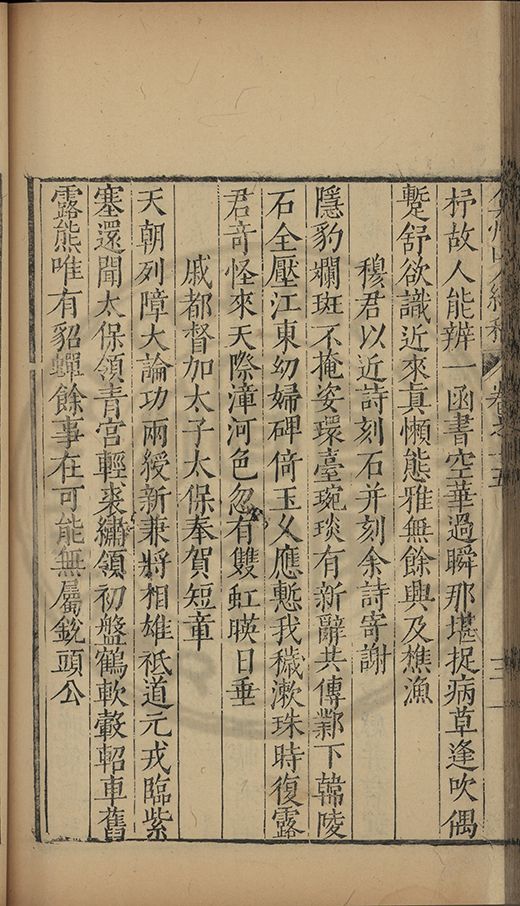 卷之十五
杼故人能辨一函書空華過瞬那堪捉病草逢吹偶
蹔舒欲識近來真懶態雅無餘興及樵漁
穆君以近詩刻石并刻余詩寄謝
隱豹斕斑不掩姿環臺琬琰有新辭共傳鄴下韓陵
石全壓江東幼婦碑倚玉乂應慙我穢漱珠時復露
君竒怪來天際漳河色忽有雙虹暎日垂
戚都督加太子太保奉賀短章
天朝列障大論功兩綬新兼將相雄祗道元戎臨紫
塞還聞太保領青宮輕裘繡領初盤鶴軟轂軺車舊
露熊唯有貂蟬餘事在可能無屬銳頭公